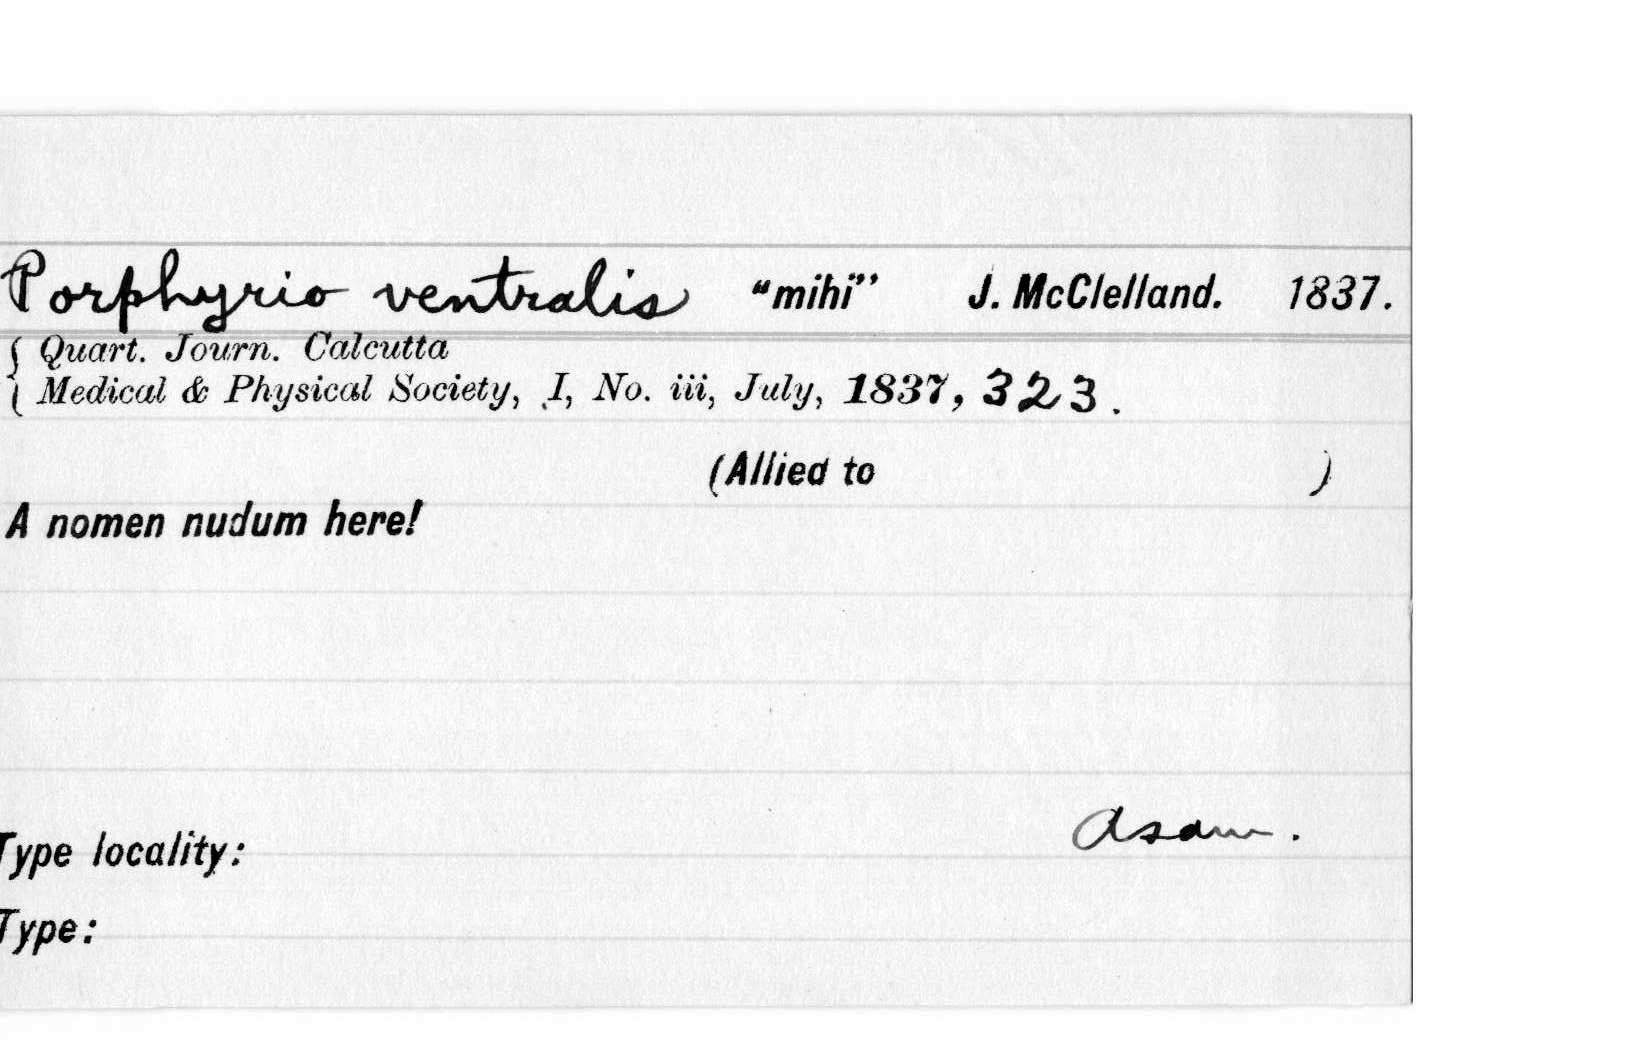 Porphyrio ventralis "mihi" J. McClelland. 1837.
{ Quart. Journ. Calcutta
{ Medical & Physical Society, I, No. iii, July, 1837, 323.
(Allied to )
A nomen nudum here!
Asam.
Type locality:
Type: